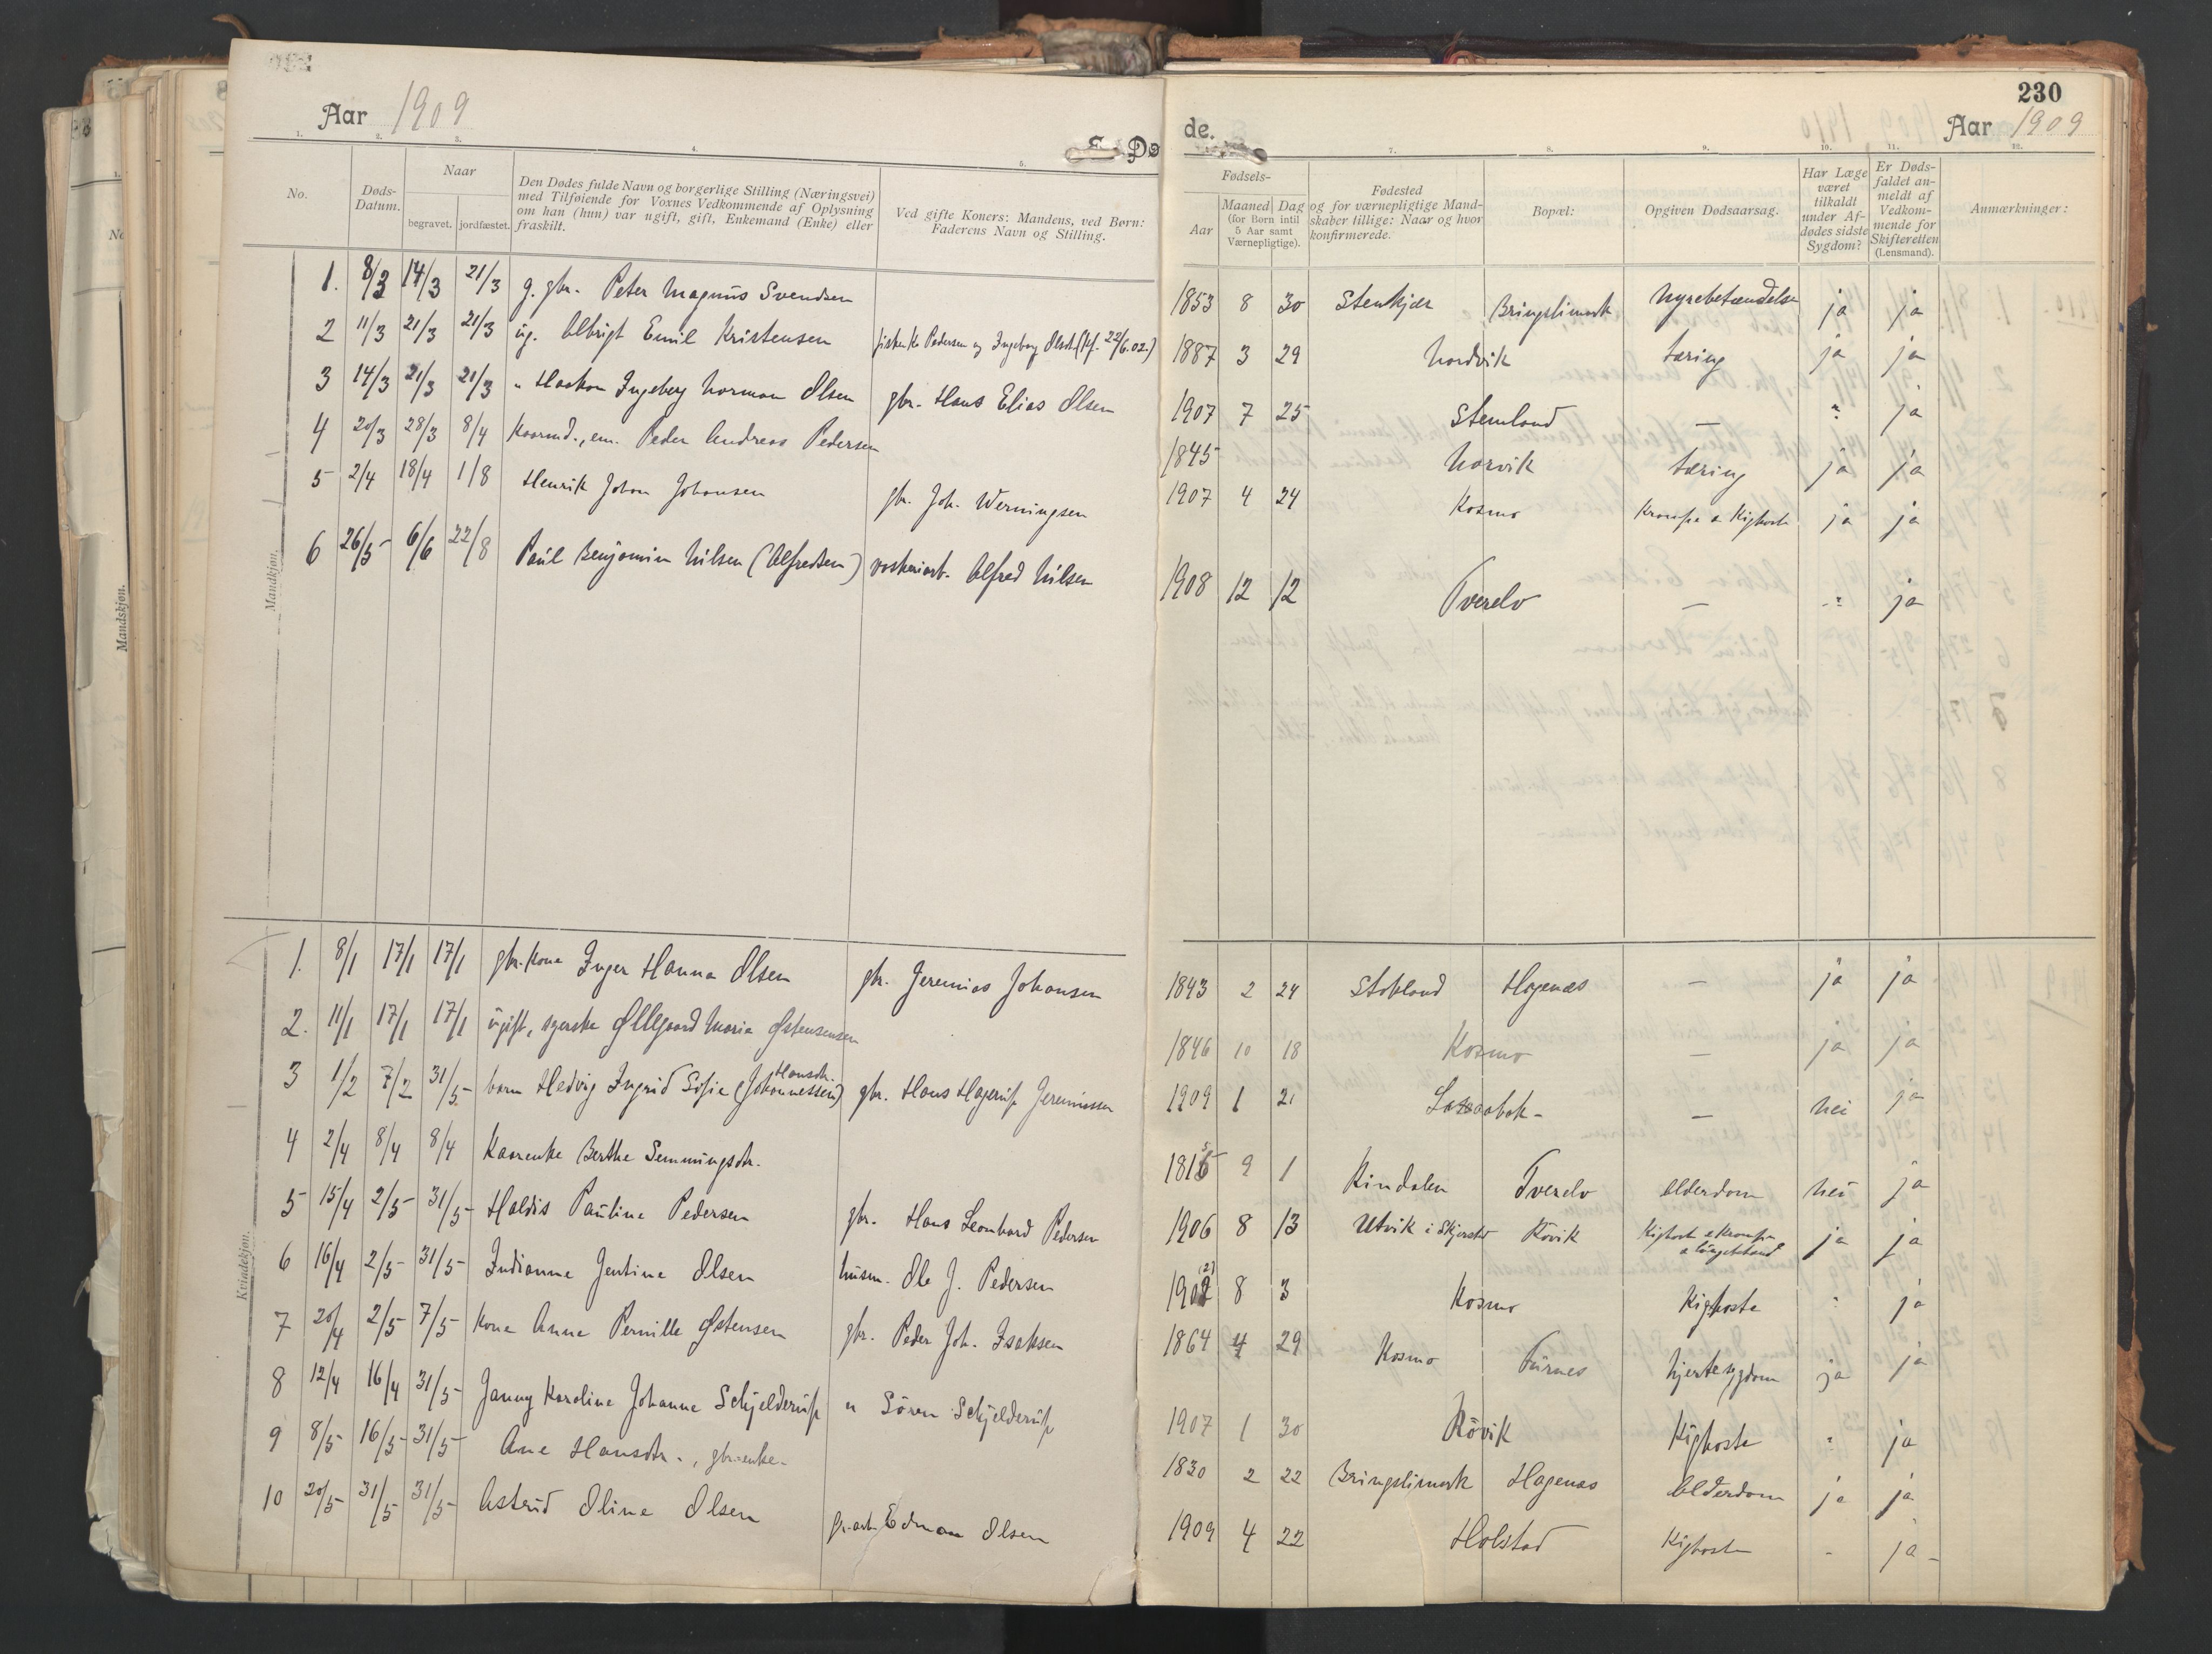 Aar 1909
E. Dø
de.
230
Aar 1909
1. 2. 3. 4. 5. 7. 8. 9. 10. 11. 12.
No.
Døds-
Datum.
Naar
begravet. jordfæstet.
Den Dødes fulde Navn og borgerlige Stilling (Næringsvei)
med Tilføiende for Voxnes Vedkommende af Oplysning
om han (hun) var ugift, gift, Enkemand (Enke) eller
fraskilt.
Ved gifte Koners: Mandens, ved Børn:
Faderens Navn og Stilling.
Fødsels-
Aar
Maaned Dag
(for Børn intil
5 Aar samt
Værnepligtige).
Fødested
og for værnepligtige Mand-
skaber tillige: Naar og hvor
konfirmerede.
Bopæl:
Opgiven Dødsaarsag.
Har Læge
været
tilkaldt
under Af-
dødes sidste
Sygdom?
Er Døds-
faldet an-
meldt af
Vedkom-
mende for
Skifteretten
(Lensmand).
Anmærkninger:
Mandkjøn.
1. 8/3 14/3 21/3 g. gbr. Peter Magnus Svendsen 1853 8 30 Stenkjær Bringslimark Nyrebetændelse ja ja
2 11/3 21/3 21/3 ug. Albrigt Emil Kristensen Pedersen og Ingeborg Olsdt. 22/6.02.) 1887 3 29 Nordvik tæring ja ja
3 14/3 21/3 21/3 " Haakon Ingeberg Norman Olsen gbr. Hans Elias Olsen 1907 7 25 Stemland — " ja
4 20/3 28/3 8/4 Kaarmd., em. Peder Andreas Pedersen 1845 Norvik tæring ja ja
5 2/4 18/4 1/8 Henrik Johan Johansen gbr. Joh. Werningsen 1907 4 24 Kosmo Krampe & Kighoste ja ja
6 26/5 6/6 22/8 Paul Benjamin Nilsen (Alfredsen) Alfred Nilsen 1908 12 12 Tverelv — -"- ja
Kvindekjøn.
1. 8/1 17/1 17/1 gbr. kone Inger Hanna Olsen gbr. Jeremias Johansen 1843 2 24 Stokland Hagenæs — ja ja
2. 11/1 17/1 17/1 ugift, syerske Ollegaard Maria Østensensen 1846 10 18 Kosmo — ja ja
3 1/2 7/2 31/5 barn Hedvig Ingrid Sofie (Johannessen) Hansdtr. gbr. Hans Hagerup Jeremiassen 1909 1 21 — nei ja
4 2/4 8/4 8/4 Kaarenke Berthe Semmingsdtr. 1815 9 1 Rindalen Tverelv Alderdom nei ja
5 15/4 2/5 31/5 Haldis Pauline Pedersen gbr. Hans Leonhard Pedersen 1906 8 13 Utvik i Skjerstad Røvik Kighoste & Krampe ja ja
6 16/4 2/5 31/5 Indianne Jentine Olsen husm. Ole J. Pedersen 1902 (2) 8 3 Kosmo Kighoste " ja
7 20/4 2/5 7/5 Kone Anne Pernille Østensen gbr. Peder Joh. Isaksen 1864 4 29 Kosmo Furnes hjertesygdom ja ja
8 12/4 16/4 31/5 Janny Karoline Johanne Schjelderup " Sören Schjelderup 1907 1 30 Rövik Kighoste " ja
9 8/5 16/5 31/5 Ane Hansdtr., gbr. enke. 1830 2 22 Bringslimark Hagenæs Alderdom ja ja
10 20/5 31/5 31/5 Astrid Oline Olsen Edman Olsen 1909 4 22 Holstad Kighoste - ja